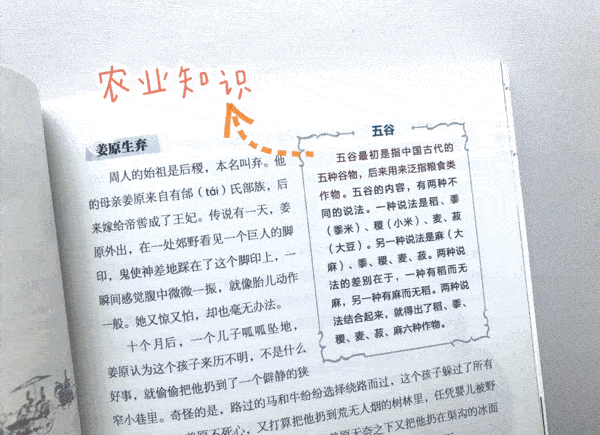 农业知识
姜原生弃
周人的始祖是后稷，本名叫弃。他
的母亲姜原来自有邰（tái）氏部族，后
来嫁给帝喾成了王妃。传说有一天，姜
原外出，在一处郊野看见一个巨人的脚
印，鬼使神差地踩在了这个脚印上，一
瞬间感觉腹中微微一振，就像胎儿动作
一般。她又惊又怕，却也毫无办法。
十个月后，一个儿子呱呱坠地，
姜原认为这个孩子来历不明，不是什么
好事，就偷偷把他扔到了一个僻静的狭
窄小巷里。奇怪的是，路过的马和牛纷纷选择绕路而过，这个孩子躲过了所有
姜原不死心，又打算把他扔到荒无人烟的树林里，任凭婴儿被野
原无奈之下又把他扔在渠沟的冰面
五谷
五谷最初是指中国古代的
五种谷物，后来用来泛指粮食类
作物。五谷的内容，有两种不
同的说法。一种说法是稻、黍
（黍米）、稷（小米）、麦、菽
（大豆）。另一种说法是麻（大
麻）、黍、稷、麦、菽。两种说
法的差别在于，一种有稻而无
麻，另一种有麻而无稻。两种说
法结合起来，就得出了稻、黍、
稷、麦、菽、麻六种作物。